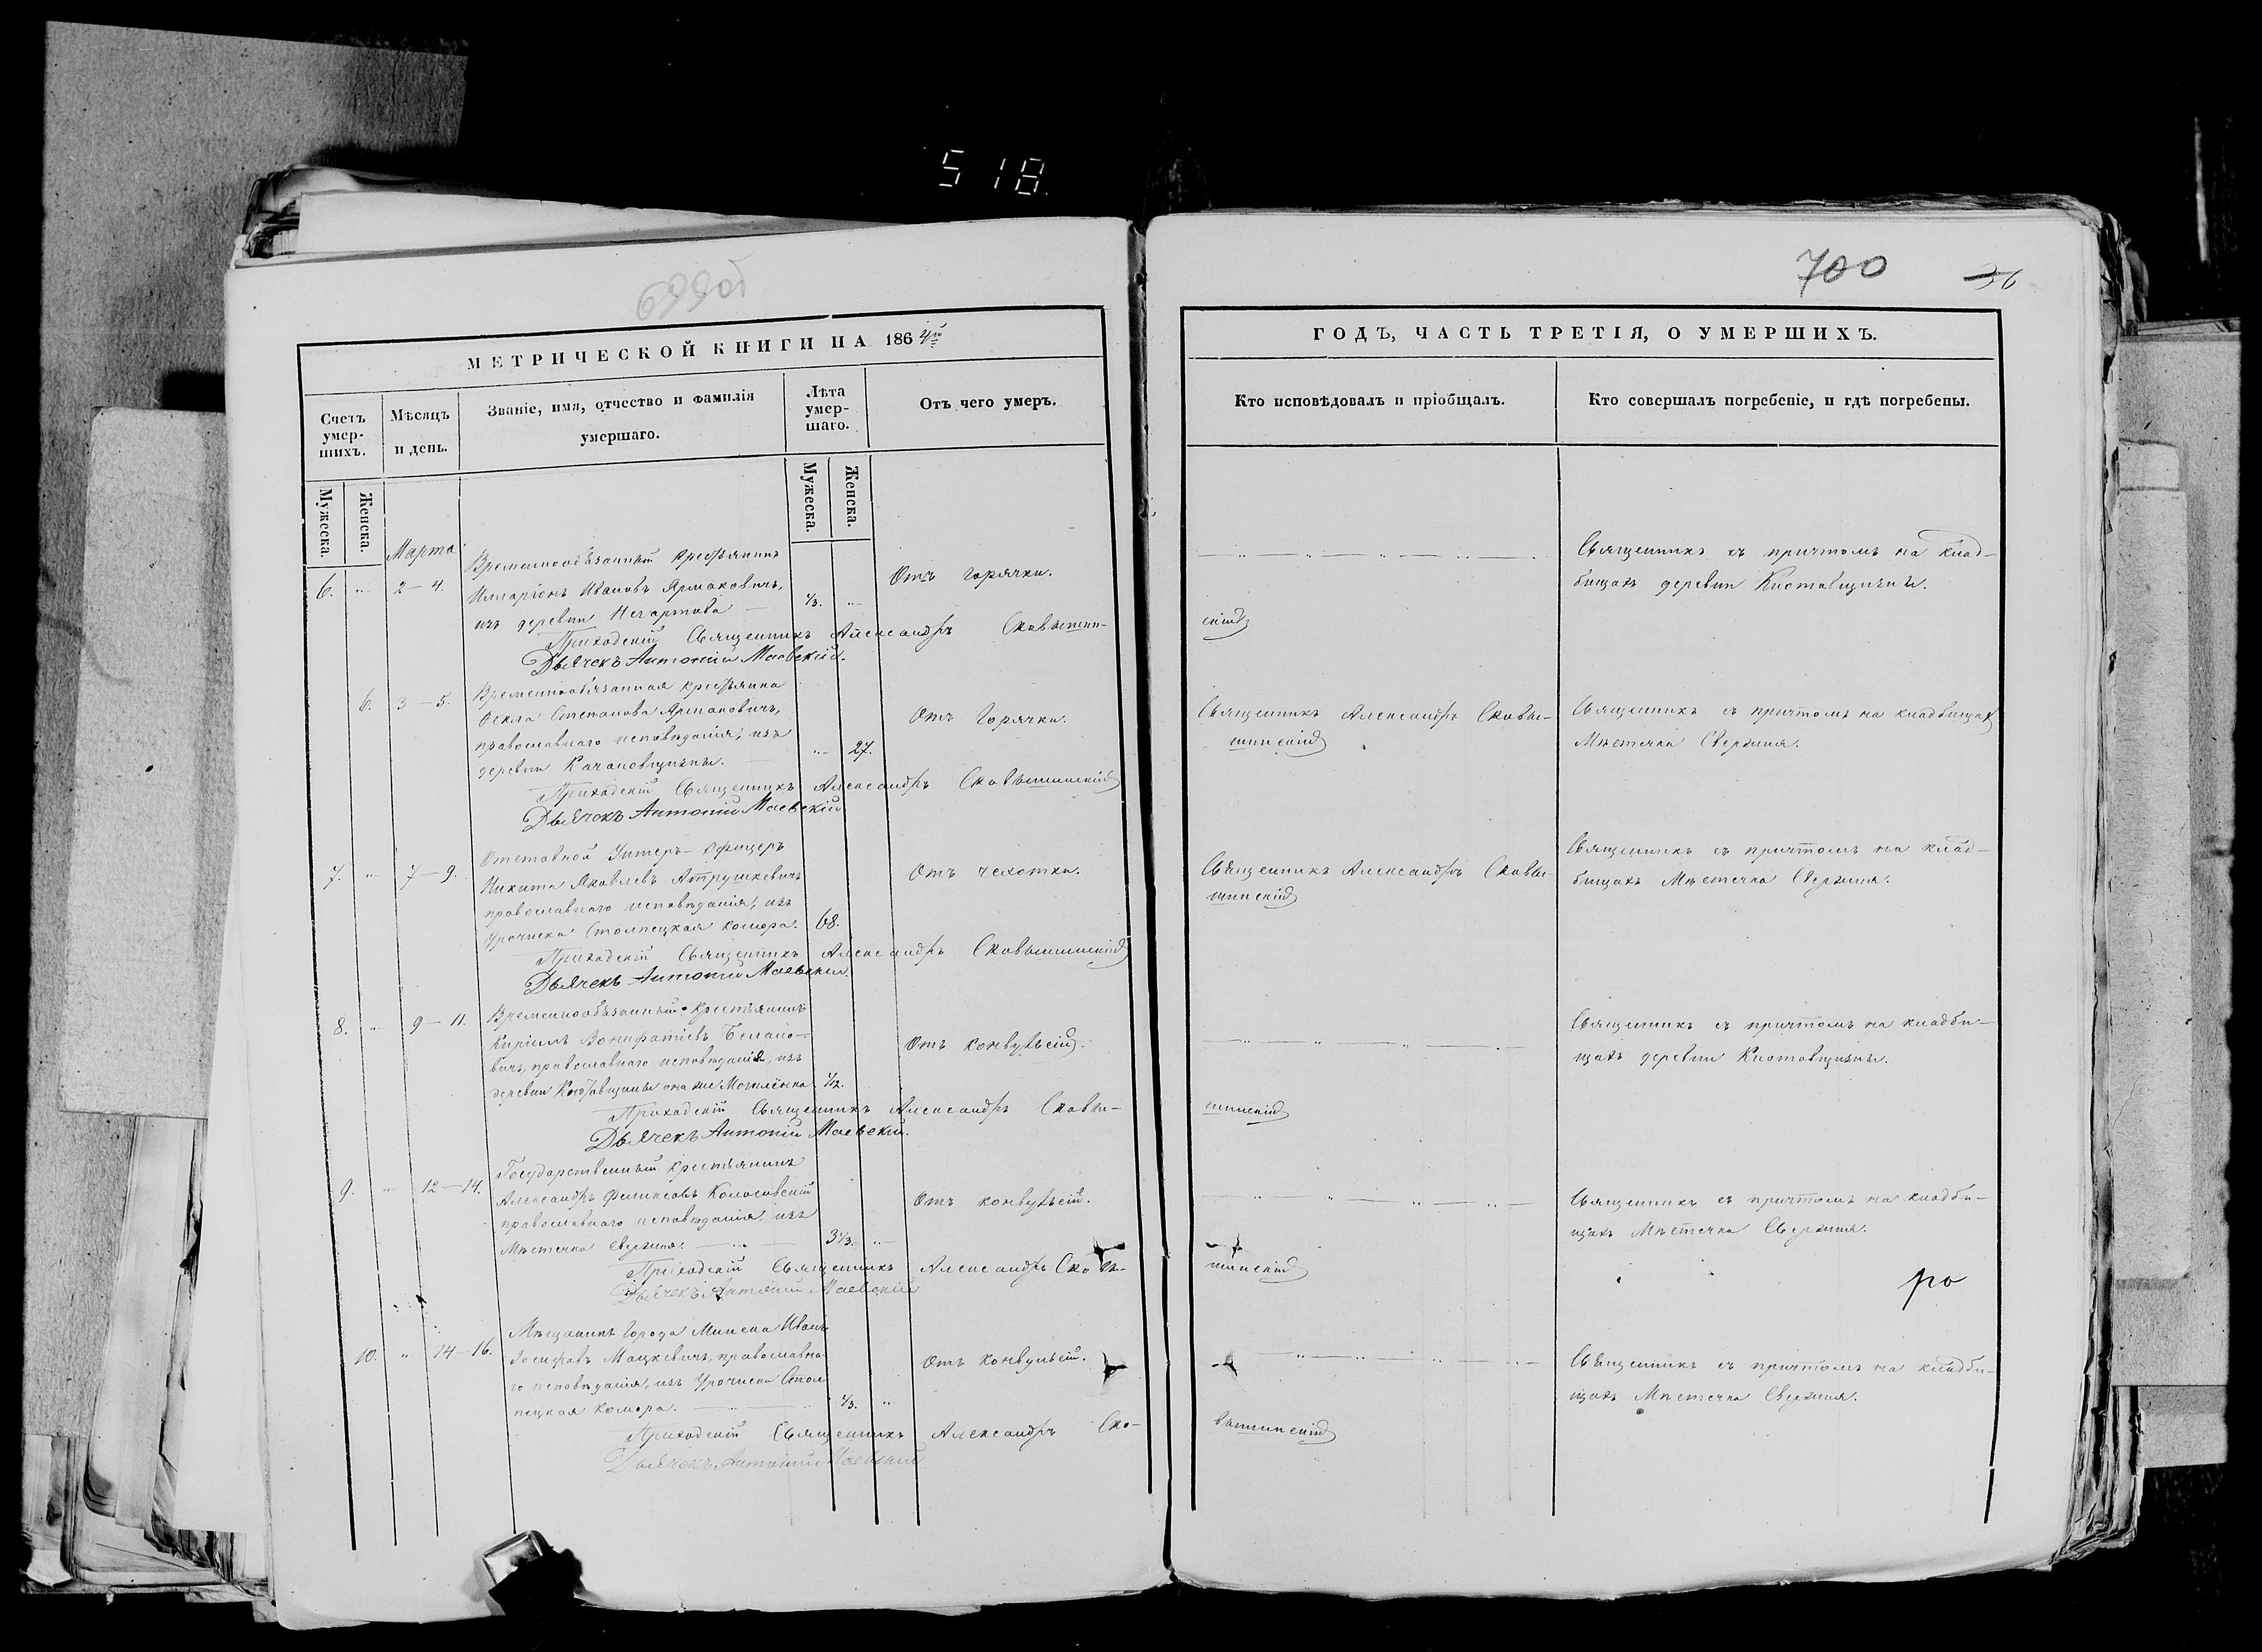 518.
699об
МЕТРИЧЕСКОЙ КНИГИ НА 1864й
Счетъ умершихъ.
Мѣсяцъ и день.
Званіе, имя, отчество и фамилія умершаго.
Лѣта умершаго.
Отъ чего умеръ.
Мужеска.
Женска.
Мужеска.
Женска.
Марта
6. " 2–4.
Временнообязанный крестьянинъ
Илларіонъ Ивановъ Ярмаковичъ,
изъ деревни
1/3. "
Отъ горячки.
Приходскій Священникъ Александръ Сковышин-
Дьячекъ Антоній Маевскій.
6. 3–5.
Временнообязанная крестьянка
Ѳекла Степанова Ярмаковичъ,
православнаго исповѣданія, изъ
деревни Качановщизны.
" 27.
Отъ Горячки.
Приходскій Священникъ Александръ Сковышинскій
Дьячокъ Антоній Маевскій
7. " 7–9.
Отставной Унтеръ-Офицеръ
Никита Яковлевъ Атрушкевичъ
православнаго исповѣданія, изъ
Урочиска Столпецкая комора.
68.
Отъ чехотки.
Приходскій Священникъ Александръ Сковышинскій
Дьячекъ Антоній Маевскій.
8. " 9–11.
Временнообязанный крестьянинъ
Кириллъ Вонифатіевъ
вичъ, православнаго исповѣданія, изъ
деревни она же
1/12.
Отъ конвульсій.
Приходскій Священникъ Александръ Сковы-
Дьячекъ Антоній Маевскій.
9. " 12–14.
Государственный крестьянинъ
Александръ Феликсовъ Колосовскій
православнаго исповѣданія, изъ
Мѣстечка Свержня.
3 1/3. "
Отъ конвульсій.
Приходскій Священникъ Александръ Сковы-
Дьячекъ Антоній Маевскій
10. " 14–16.
Мѣщанинъ Города Минска Иванъ
Іосифовъ Мацкевичъ, православна-
го исповѣданія, изъ Урочиска Стол
пецкая комора.
1/3. "
Отъ конвульсій.
Приходскій Священникъ Александръ Ско-
Дьячекъ Антоній Маевскій
700
36
ГОДЪ, ЧАСТЬ ТРЕТІЯ, О УМЕРШИХЪ.
Кто исповѣдовалъ и пріобщалъ.
Кто совершалъ погребеніе, и гдѣ погребены.
Священникъ съ причтомъ на клад-
бищахъ деревни
скій
Священникъ Александръ Сковы-
шинскій
Священникъ съ причтомъ на кладбищахъ
Мѣстечка Свержня.
Священникъ Александръ Сковы-
шинскій
Священникъ съ причтомъ на клад-
бищахъ Мѣстечка Свержня.
Священникъ съ причтомъ на кладби-
щахъ деревни
шинскій
Священникъ съ причтомъ на кладби-
щахъ Мѣстечка Свержня.
шинскій
ро
Священникъ съ причтомъ на кладби-
щахъ Мѣстечка Свержня.
вышинскій